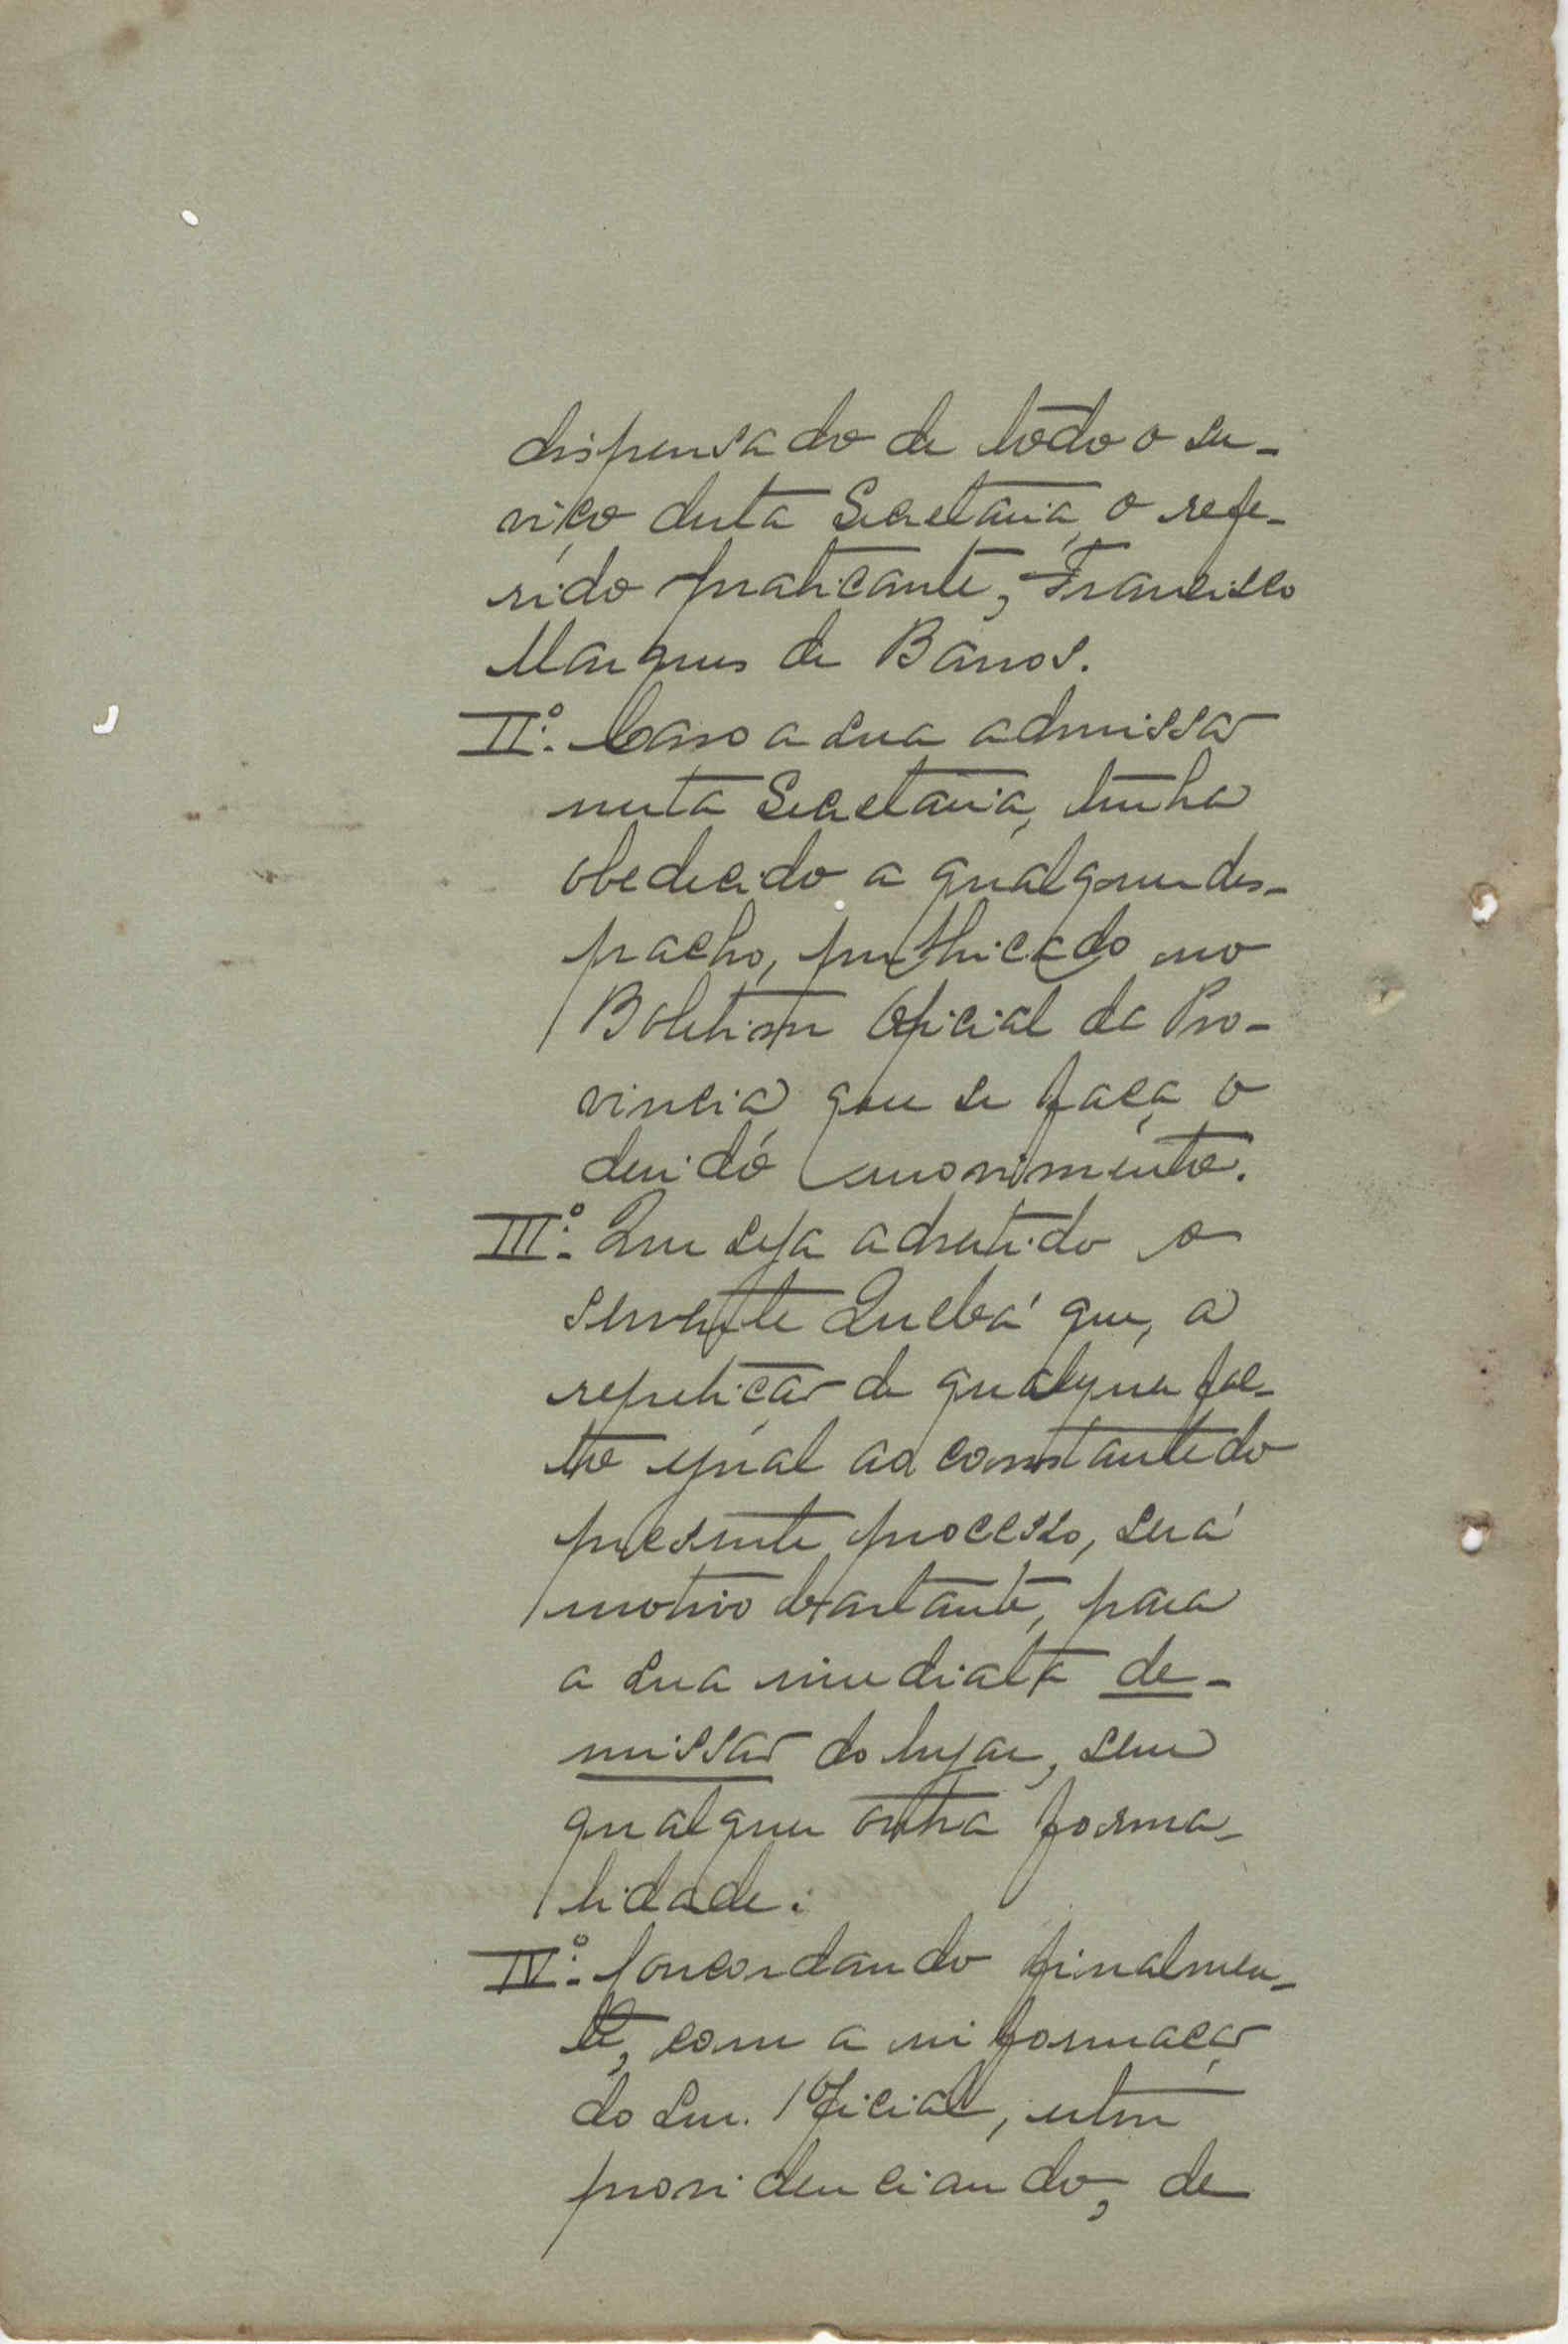 dispensado de todo o ser-
viço desta Secretaria, o refe-
rido praticante, Francisco
Marques de Barros.
IIº. Caso a sua admissão
nesta Secretaria, tenha
obedecido a qualquer des-
pacho, publicado no
Boletim Oficial da Pro-
vincia que se faça o
devido
IIIº. Que seja advertido o
servente Quebá que, a
repetição de qualquer fac-
to igual ao constante do
presente processo, será
motivo bastante, para
a sua imediata de-
missão do lugar, sem
qualquer outra forma-
lidade.
IVº. Concordando finalmen-
te, com a informação
do Snr. 1º Oficial, estou
providenciando, de